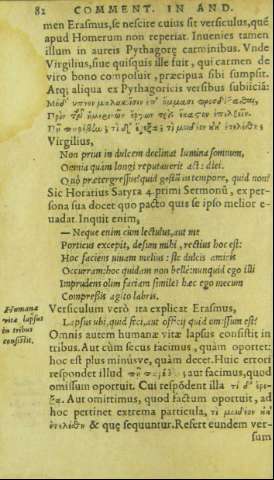 82 COMMENT. IN AND.
men Erasmus, se nescire cuius sit versiculus, quē
apud Homerum non reperiat. Inuenies tamen
illum in aureis Pythagorę carminibus. Vnde
Virgilius, siue quisquis ille fuit, qui carmen de
viro bono composuit, præcipua sibi sumpsit.
Atq; aliqua ex Pythagoricis versibus subiiciā:
Virgilius,
Non prius in dulcem declinat lumina somnum,
Omnia quàm longi reputauerit acta diei.
Quò prætergressus? quid gestū in tempore, quid non?
Sic Horatius Satyra 4. primi Sermonū, ex per-
sona sua docet quo pacto quis se ipso melior e-
uadat. Inquit enim,
— Neque enim cum lectulus, aut me
Porticus excepit, desum mihi, rectius hoc est:
Hoc faciens uiuam melius: sic dulcis amicis
Occurram: hoc quidam non bellè: nunquid ego illi
Imprudens olim faciam simile? hæc ego mecum
Compressis agito labris.
Humanæ
vitæ lapsus
in tribus
consistit.
Versiculum verò ita explicat Erasmus,
Lapsus ubi, quid feci, aut officij quid omissum est?
Omnis autem humanæ vitæ lapsus consistit in
tribus. Aut cùm secus facimus, quàm oportet:
hoc est plus minúsve, quàm decet. Huic errori
respondet illud aut facimus, quod
omissum oportuit. Cui respōdent illa
Aut omittimus, quod factum oportuit, ad
hoc pertinet extrema particula,
& que sequuntur. Refert eundem ver-
sum